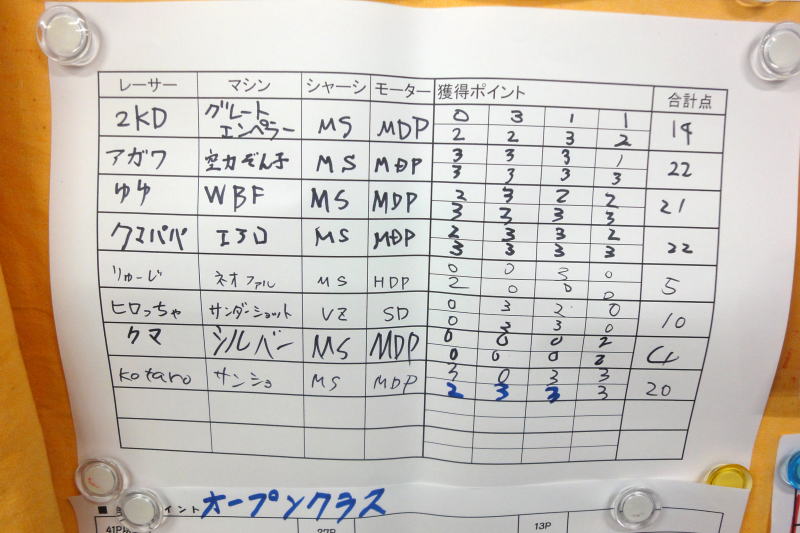 レーサー マシン シャーシ モーター 獲得ポイント 合計点
2KD グレートエンペラー MS MDP 0 3 1 1 14
2 2 3 2
アガワ 空力ぞん子 MS MDP 3 3 3 1 22
3 3 3 3
ゆゆ WBF MS MDP 2 3 2 2 21
3 3 3 3
クマパパ エヌロ MS MDP 2 3 3 2 22
3 3 3 3
りゅーじ ネオファル MS HDP 0 0 3 0 5
2 0 0 0
ヒロっちゃ サンダーショット VZ SD 0 3 2 0 10
0 3 3 0
クマ シルバー MS MDP 0 0 0 2 4
0 0 0 2
kotaro サンショ MS MDP 3 0 3 3 20
2 3 3 3
オープンクラス
41P 27P 13P